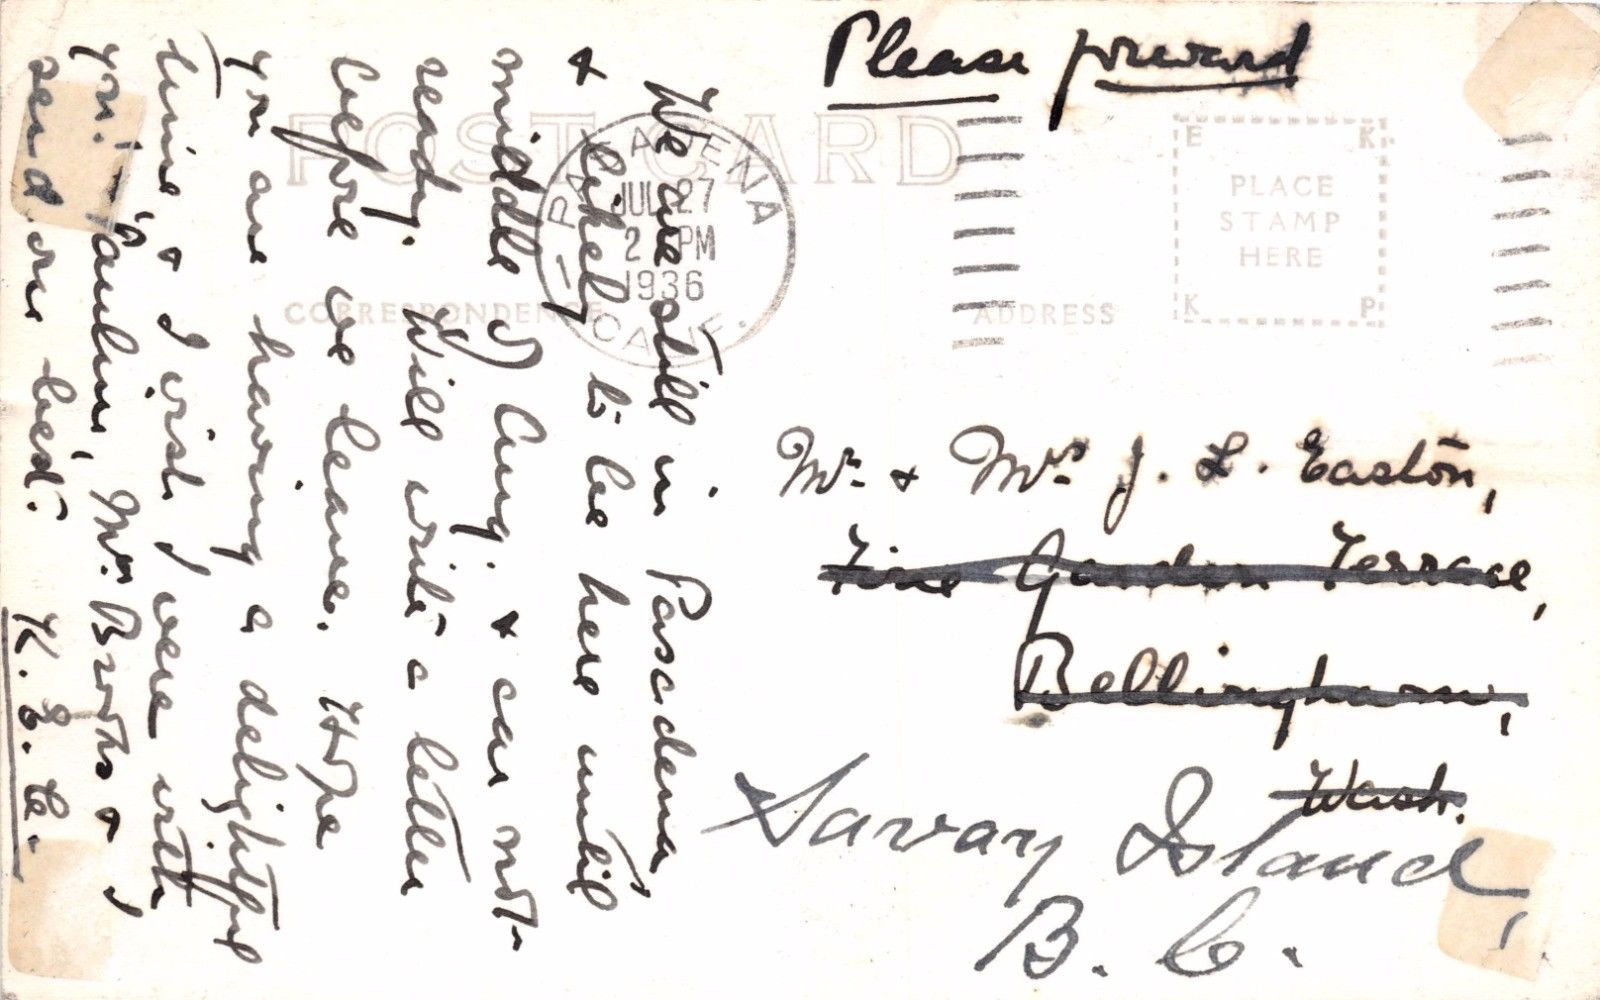 Please forward
POST CARD
PASADENA
JUL 27
2 PM
1936
CALIF.
CORRESPONDENCE
ADDRESS
E K
PLACE
STAMP
HERE
K P
We are still in Pasadena
& likely to be here until
middle of Aug. & car not
ready. Will write a letter
before we leave. Hope
you are having a delightful
time & I wish I were with
you. Pauline, Mrs. Brooks & I
send our best. K. E. C.
Mr. & Mrs. J. L. Easton,
Fine Garden Terrace,
Bellingham,
Wash.
Savary Island,
B. C.